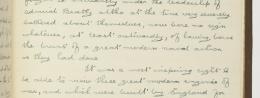 under the leadership of
admiral Beatty altho at the time very severely
battered about themselves, now bore no sign
whatever, at least outwardly, of having borne
the brunt of a great modern naval action
as they had done.
It was a most inspiring sight to
be able to view these great modern engines of
war, and which were built by England for